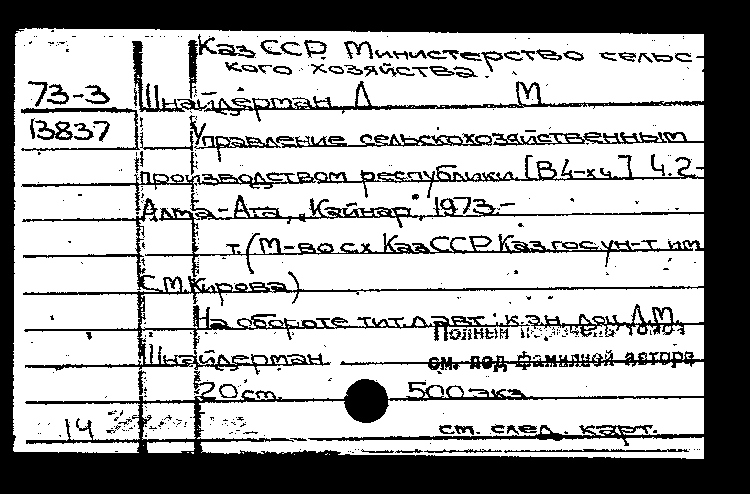 Каз ССР Министерство сельс-
кого хозяйства.
73-3 Шнайдерман, Л М
13837 Управление сельскохозяйственным
производством республики. [В 4-х ч.] Ч.2-
Алма-Ата, „Кайнар", 1973.-
т. (М-во с.х. КазССР Каз.гос.ун-т им
С.М.Кирова)
На обороте тит.л.авт.: к.э.н. доц Л.М.
Полный перечень томов
Шнайдерман
см. под фамилией автора
20 ст. 500 экз.
14
ст. след. карт.